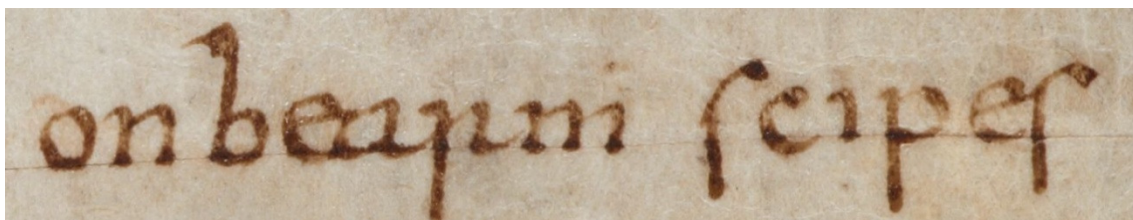 onbearm scipes